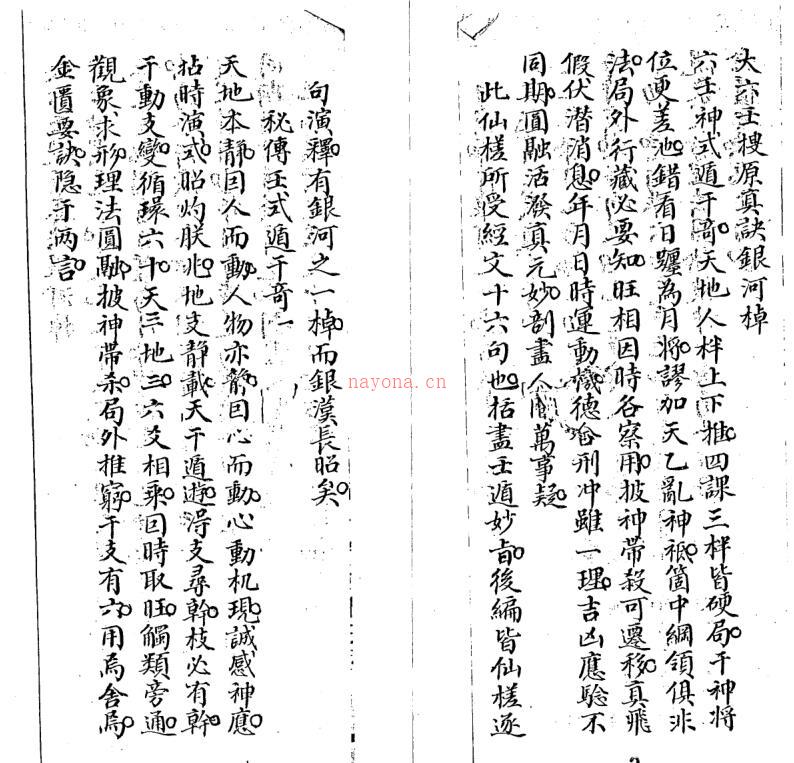 大六壬搜源真訣銀河棹
六壬神式遁干奇天地人柈上下推四課三柈皆硬局干神將
位更差池錯看日躔為月將謬加天乙亂神祗箇中綱領俱非
法局外行藏必要知旺相因時各察用披神帶殺可遷移真飛
假伏潛消息年月日時運動儀德合刑冲雖一理吉凶應驗不
同期圓融活潑真元妙剖盡人間萬事疑
此仙槎所受經文十六句也括盡壬遁妙旨後編皆仙槎逐
句演釋有銀河之一棹而銀漢長昭矣
秘傳壬式遁干奇一
天地本靜因人而動人物亦靜因心而動心動机現誠感神應
拈時演式昭灼朕兆地支靜載天干遁遊淂支尋幹枝必有幹
干動支變循環六十天三地三六爻相乘因時取旺觸類旁通
觀象求形理法圓融披神帶杀局外推窮干支有六用焉舍焉
金匱要訣隐于兩言
nayona.cn